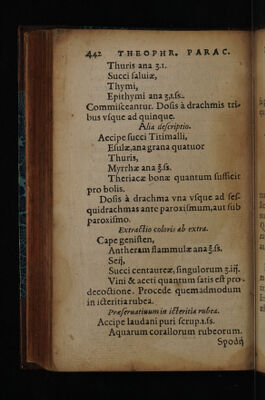 442 THEOPHR. PARAC.
Thuris ana ʒ.1.
Succi saluiæ,
Thymi,
Epithymi ana ʒ.1.ſs.
Commiſceantur. Doſis à drachmis tri-
bus vſque ad quinque.
Alia deſcriptio.
Accipe ſucci Titimalli,
Eſulæ, ana grana quatuor
Thuris,
Myrrhæ ana ℥.ſs.
Theriacæ bonæ quantum ſufficit
pro bolis.
Doſis à drachma vna vſque ad ſeſ-
quidrachmas ante paroxiſmum, aut ſub
paroxiſmo.
Extractio coloris ab extra.
Cape geniſten,
Antheram flammulæ ana ℥.ſs.
Seij,
Succi centaureæ, ſingulorum ʒ.iij.
Vini & aceti quantum ſatis eſt pro
decoctione. Procede quemadmodum
in icteritia rubea.
Præſeruatiuum in icteritia rubea.
Accipe laudani puri ſcrup.1.ſs.
Aquarum corallorum rubeorum.
Spodij